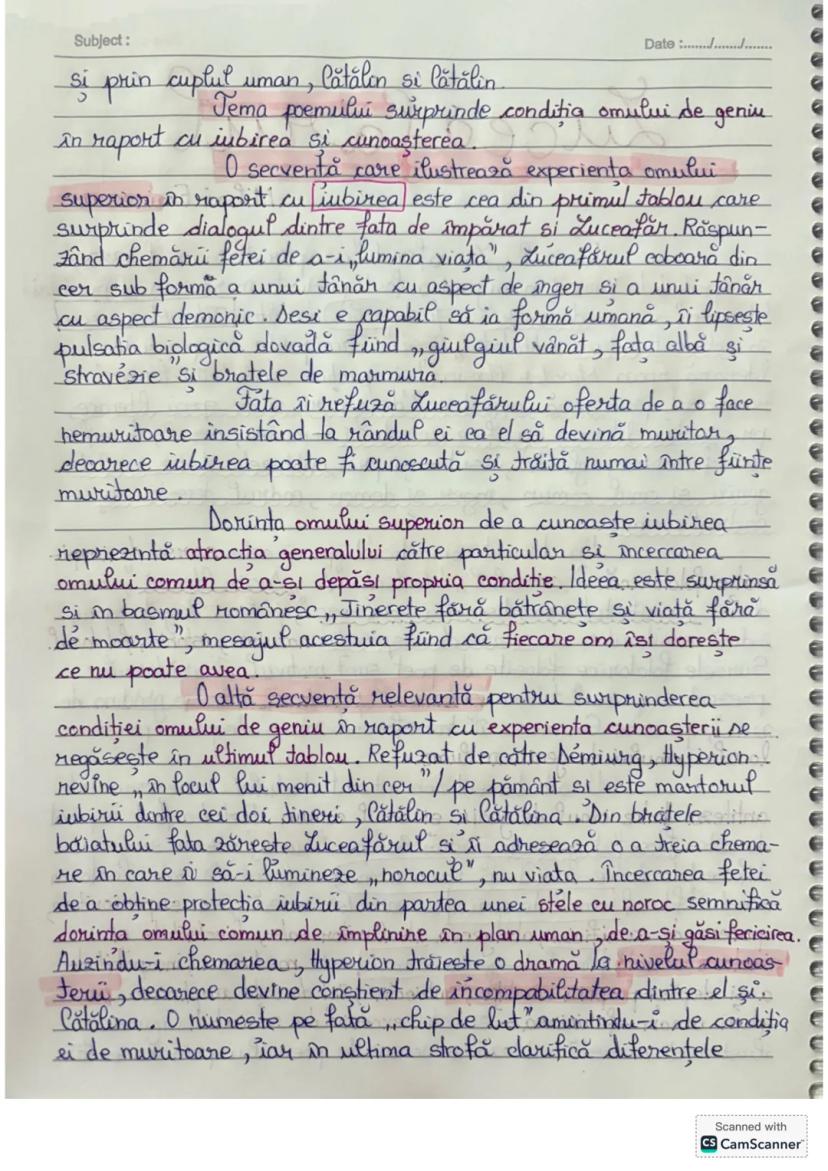 Subject :
Date :......./......../.......
și prin cuplul uman, Cătălin si Cătălin.
Tema poemului surprinde condiția omului de geniu
în raport cu iubirea și cunoașterea.
O secvență care ilustrează experiența omului
superior în raport cu iubirea este cea din primul tablou care
surprinde dialogul dintre fata de împărat și Luceafăr. Răspun-
zând chemării fetei de a-i „lumina viața", Luceafărul coboară din
cer sub formă a unui tânăr cu aspect de înger și a unui tânăr
cu aspect demonic. Desi e capabil să ia formă umană, îi lipsește
pulsația biologică dovadă fiind „giulgiul vânăt, fața albă și
străvezie" și brațele de marmură.
Fata îi refuză Luceafărului oferta de a o face
nemuritoare insistând la rândul ei ca el să devină muritor,
deoarece iubirea poate fi cunoscută și trăită numai între ființe
muritoare.
Dorința omului superior de a cunoaște iubirea
reprezintă atracția generalului către particular și încercarea
omului comun de a-și depăși propria condiție. Ideea este surprinsă
și în basmul românesc „Tinerețe fără bătrânețe și viață fără
de moarte", mesajul acestuia fiind că fiecare om își dorește
ce nu poate avea.
O altă secvență relevantă pentru surprinderea
condiției omului de geniu în raport cu experiența cunoașterii se
regăsește în ultimul tablou. Refuzat de către Demiurg, Hyperion
revine „în locul lui menit din cer"/ pe pământ si este martorul
iubirii dintre cei doi tineri, Cătălin și Cătălina. Din brațele
băiatului fata zărește Luceafărul și îi adresează o a treia chema-
re în care îi să-i lumineze „norocul", nu viața. Încercarea fetei
de a obține protecția iubirii din partea unei stele cu noroc semnifică
dorința omului comun de împlinire în plan uman, de a-și găsi fericirea.
Auzindu-i chemarea, Hyperion trăiește o dramă la nivelul cunoaș-
terii, deoarece devine conștient de incompabilitatea dintre el și
Cătălina. O numește pe fată „chip de lut" amintindu-i de condiția
ei de muritoare, iar în ultima strofă clarifică diferențele
Scanned with
CS CamScanner